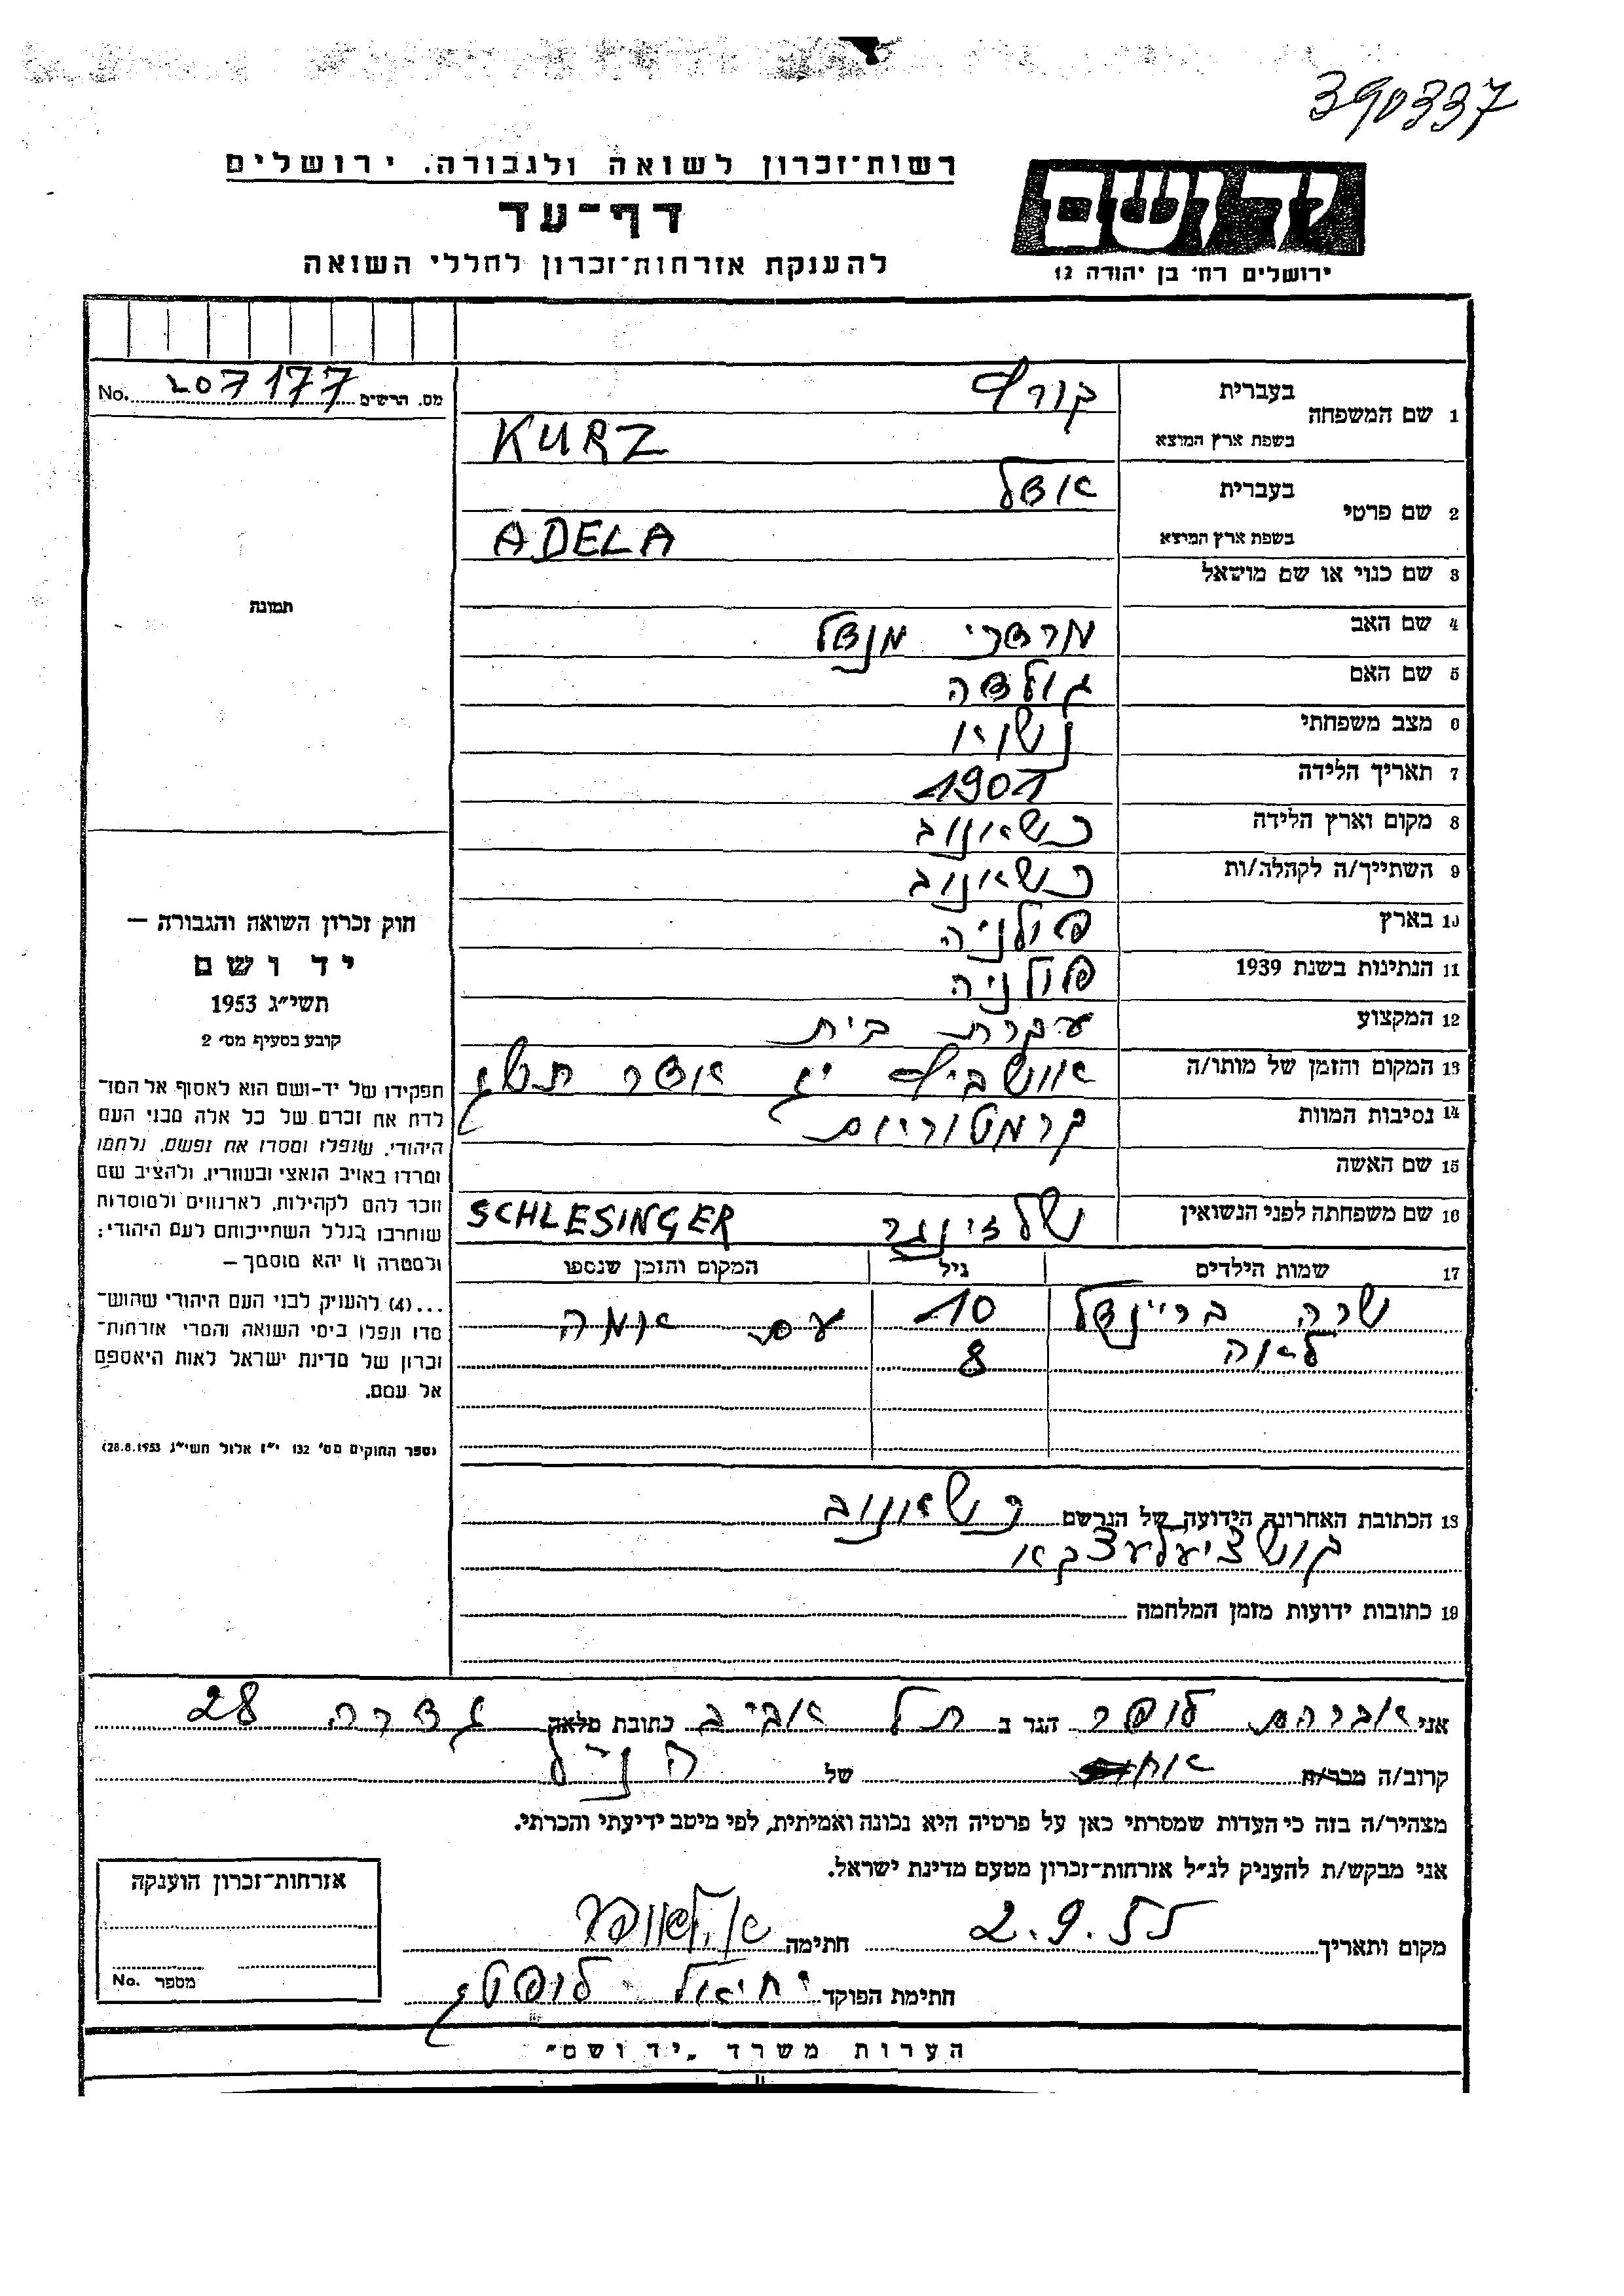 390337
רשות־זכרון לשואה ולגבורה. ירושלים
דף־עד
להענקת אזרחות־זכרון לחללי השואה
יד ושם
ירושלים רח׳ בן יהודה 12
מס. הרשים No. 207177
1 שם המשפחה בעברית קורץ
בשפת ארץ המוצא KURZ
2 שם פרטי בעברית אדל
בשפת ארץ המוצא ADELA
3 שם כנוי או שם מושאל
4 שם האב מרדכי מנדל
5 שם האם גולדה
6 מצב משפחתי נשואו
7 תאריך הלידה 1901
8 מקום וארץ הלידה כשאנוב
9 השתייך/ה לקהלה/ות כשאנוב
10 בארץ פולניה
11 הנתינות בשנת 1939 פולניה
12 המקצוע עקרת בית
13 המקום והזמן של מותו/ה אושביץ יג אדר תשג
14 נסיבות המוות קרמטוריום
15 שם האשה
16 שם משפחתה לפני הנשואין שלזינגר SCHLESINGER
17 שמות הילדים גיל המקום והזמן שנספו
שרה בריינדל 10 עם אמה
לאה 8
18 הכתובת האחרונה הידועה של הנרשם כשאנוב
19 כתובות ידועות מזמן המלחמה
תמונה
חוק זכרון השואה והגבורה —
יד ושם
תשי״ג 1953
קובע בסעיף מס׳ 2
תפקידו של יד־ושם הוא לאסוף אל המו־
לדת את זכרם של כל אלה מבני העם
היהודי, שנפלו ומסרו את נפשם, נלחמו
ומרדו באויב הנאצי ובעוזריו, ולהציב שם
וזכר להם לקהילות, לארגונים ולמוסדות
שוחרבו בגלל השתייכותם לעם היהודי;
ולמטרה זו יהא מוסמך —
...(4) להעניק לבני העם היהודי שהוש־
מדו ונפלו בימי השואה והמרי אזרחות־
זכרון של מדינת ישראל לאות היאספם
אל עמם.
(ספר החוקים מס׳ 132 י״ז אלול תשי״ג 28.8.1953)
אני אברהם לופר הגר ב תל אביב כתובת מלאה גדרה 28
קרוב/ה מכר/ה של הנ״ל
מצהיר/ה בזה כי העדות שמסרתי כאן על פרטיה היא נכונה ואמיתית, לפי מיטב ידיעתי והכרתי.
אני מבקש/ת להעניק לנ״ל אזרחות־זכרון מטעם מדינת ישראל.
מקום ותאריך 2.9.55 חתימה
חתימת הפוקד יחיאל
אזרחות־זכרון הוענקה
מספר No.
הערות משרד „יד ושם״